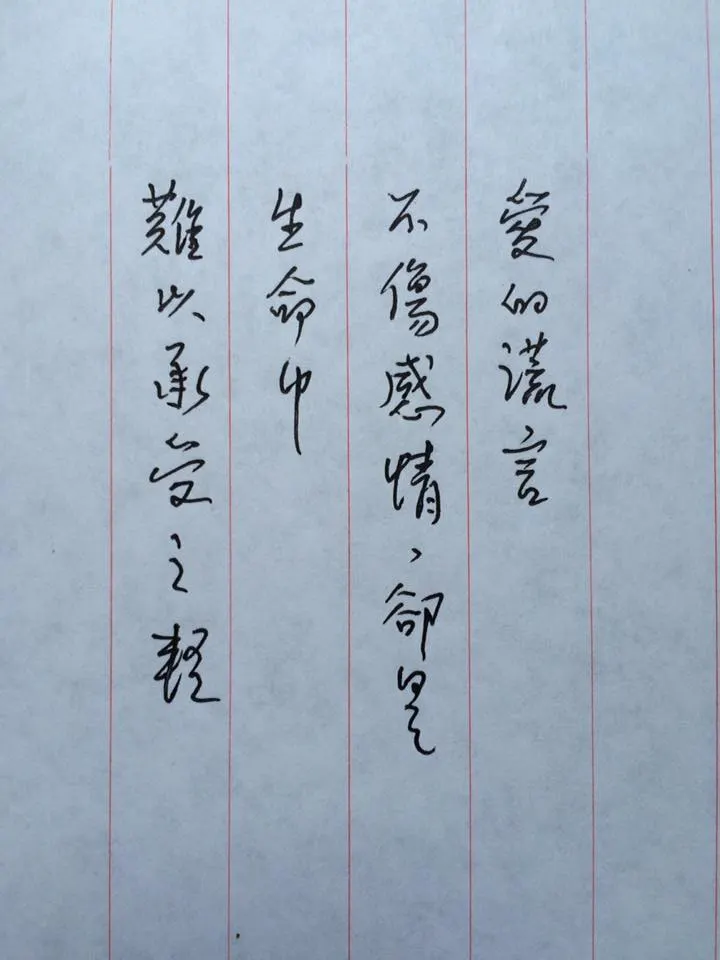 愛的謊言
不傷感情、卻是
生命中
難以承受之輕